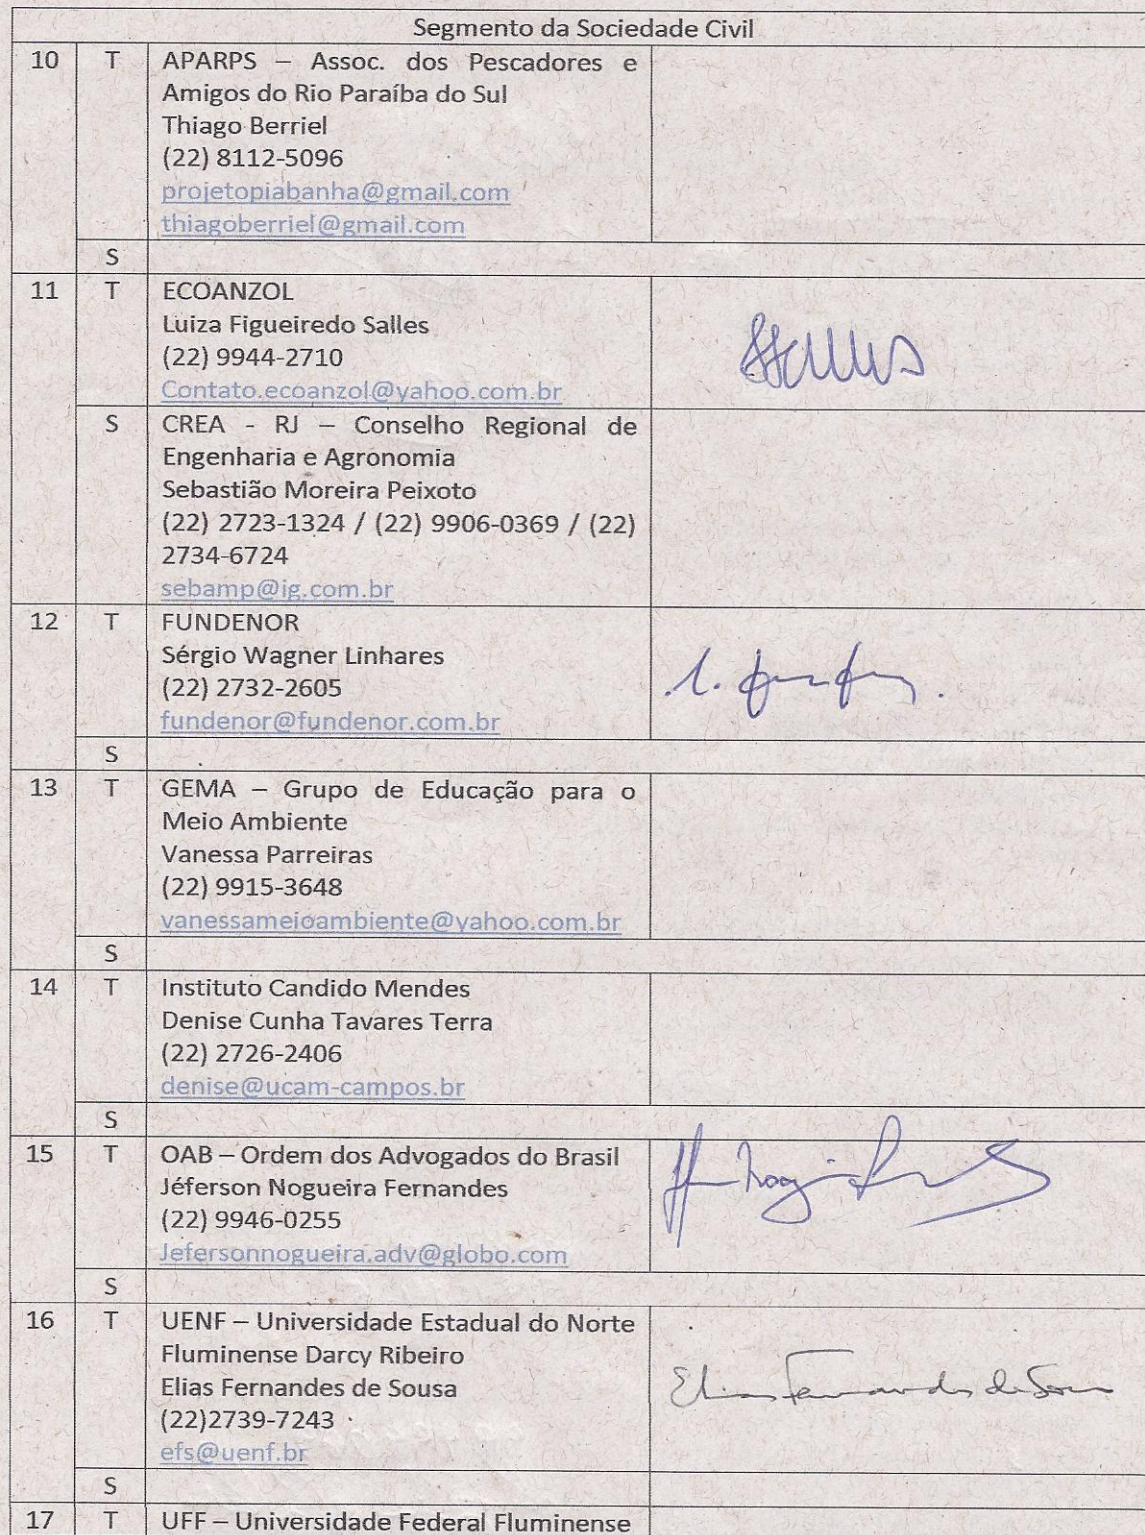 Segmento da Sociedade Civil
10 T APARPS – Assoc. dos Pescadores e
Amigos do Rio Paraíba do Sul
Thiago Berriel
(22) 8112-5096
projetopiabanha@gmail.com
thiagoberriel@gmail.com
S
11 T ECOANZOL
Luiza Figueiredo Salles
(22) 9944-2710
Contato.ecoanzol@yahoo.com.br
S CREA - RJ – Conselho Regional de
Engenharia e Agronomia
Sebastião Moreira Peixoto
(22) 2723-1324 / (22) 9906-0369 / (22)
2734-6724
sebamp@ig.com.br
12 T FUNDENOR
Sérgio Wagner Linhares
(22) 2732-2605
fundenor@fundenor.com.br
S
13 T GEMA – Grupo de Educação para o
Meio Ambiente
Vanessa Parreiras
(22) 9915-3648
vanessameioambiente@yahoo.com.br
S
14 T Instituto Candido Mendes
Denise Cunha Tavares Terra
(22) 2726-2406
denise@ucam-campos.br
S
15 T OAB – Ordem dos Advogados do Brasil
Jéferson Nogueira Fernandes
(22) 9946-0255
Jefersonnogueira.adv@globo.com
S
16 T UENF – Universidade Estadual do Norte
Fluminense Darcy Ribeiro
Elias Fernandes de Sousa
Elias Fernandes de Sousa
(22)2739-7243
efs@uenf.br
S
17 T UFF – Universidade Federal Fluminense